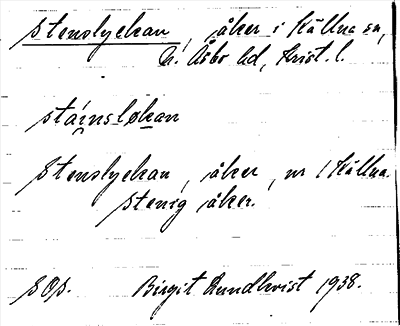 Stenslyckan, åker i Källna sn,
N. Åsbo hd, Krist. l.
stáinsløkan
Stenslyckan, åker, nr 1 Källna.
stenig åker.
SOp. Birgit Lundkvist 1938.